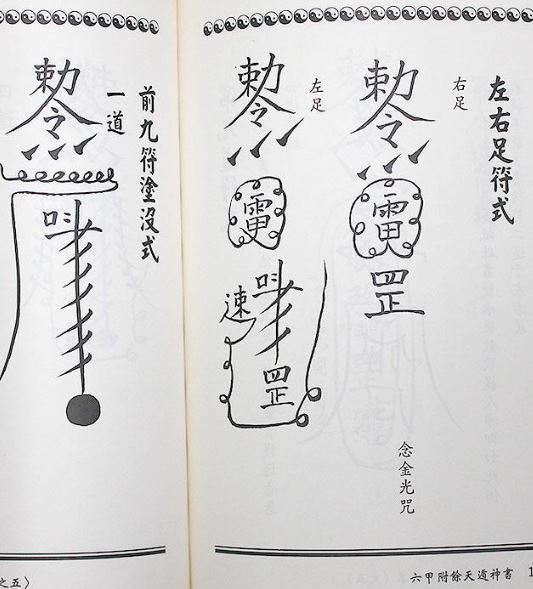 左右足符式
右足
勅令
罡
念金光咒
左足
勅令
速
罡
六甲附餘天遁神書 1
前九符塗沒式
一道
勅令
之五〉